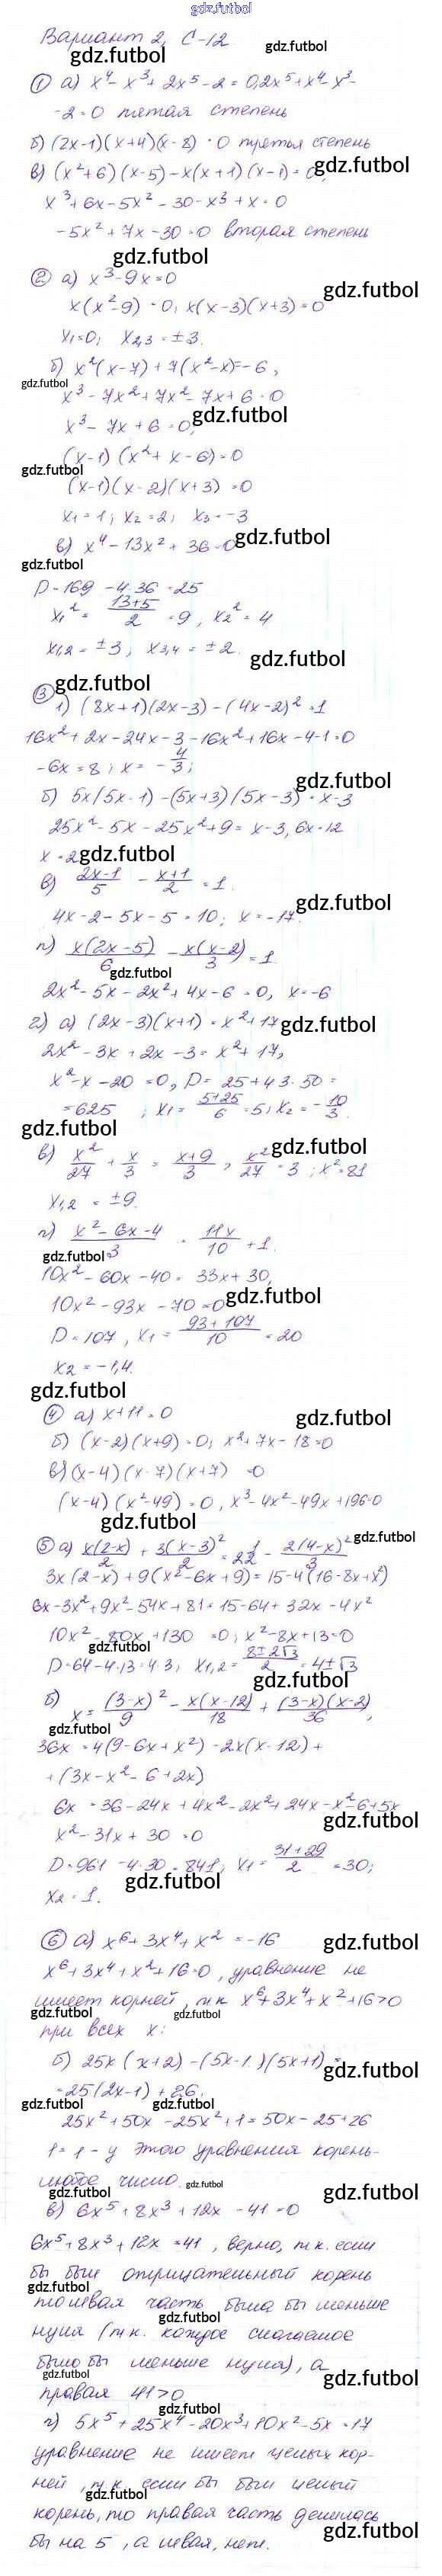 gdz.futbol
Вариант 2, С-12
gdz.futbol gdz.futbol
① а) x⁴ - x³ + 2x⁵ - 2 = 0, 2x⁵ + x⁴ - x³ -
- 2 = 0 пятая степень
б) (2x-1)(x+4)(x-8) = 0 третья степень
в) (x²+6)(x-5) - x(x+1)(x-1) = 0, gdz.futbol
x³ + 6x - 5x² - 30 - x³ + x = 0
-5x² + 7x - 30 = 0 вторая степень
gdz.futbol
② а) x³ - 9x = 0 gdz.futbol
x(x²-9) = 0; x(x-3)(x+3) = 0
x₁ = 0; x₂,₃ = ±3.
б) x²(x-7) + 7(x²-x) = -6,
gdz.futbol
x³ - 7x² + 7x² - 7x + 6 = 0
gdz.futbol
x³ - 7x + 6 = 0,
(x-1)(x²+x-6) = 0
gdz.futbol
(x-1)(x-2)(x+3) = 0
x₁ = 1; x₂ = 2; x₃ = -3
в) x⁴ - 13x² + 36 = 0 gdz.futbol
gdz.futbol
D = 169 - 4·36 = 25
x₁² = (13+5)/2 = 9, x₂² = 4
x₁,₂ = ±3; x₃,₄ = ±2. gdz.futbol
③ gdz.futbol
1) (8x+1)(2x-3) - (4x-2)² = 1
16x² + 2x - 24x - 3 - 16x² + 16x - 4 - 1 = 0
-6x = 8; x = -4/3; gdz.futbol
б) 5x(5x-1) - (5x+3)(5x-3) = x-3
25x² - 5x - 25x² + 9 = x - 3, 6x = 12
x = 2 gdz.futbol
в) (2x-1)/5 - (x+1)/2 = 1. gdz.futbol
4x - 2 - 5x - 5 = 10; x = -17.
г) x(2x-5)/6 - x(x-2)/3 = 1
gdz.futbol
2x² - 5x - 2x² + 4x - 6 = 0, x = -6
2) а) (2x-3)(x+1) = x² + 17 gdz.futbol
2x² - 3x + 2x - 3 = x² + 17,
x² - x - 20 = 0, D = 25 + 4·3·50 =
= 625; x₁ = (5+25)/6 = 5; x₂ = -10/3.
gdz.futbol
в) x²/27 + x/3 = (x+9)/3, x²/27 = 3; x² = 81 gdz.futbol
x₁,₂ = ±9.
г) (x² - 6x - 4)/3 = 11x/10 + 1.
gdz.futbol
10x² - 60x - 40 = 33x + 30,
10x² - 93x - 70 = 0 gdz.futbol
D = 107, x₁ = (93+107)/10 = 20
x₂ = -1,4.
gdz.futbol
④ а) x + 11 = 0 gdz.futbol
б) (x-2)(x+9) = 0; x² + 7x - 18 = 0
в) (x-4)(x-7)(x+7) = 0
(x-4)(x²-49) = 0, x³ - 4x² - 49x + 196 = 0
gdz.futbol
⑤ а) x(2-x)/2 + 3(x-3)²/2 = 2 1/2 - 2(4-x)²/3 gdz.futbol
3x(2-x) + 9(x²-6x+9) = 15 - 4(16-8x+x²)
6x - 3x² + 9x² - 54x + 81 = 15 - 64 + 32x - 4x²
10x² - 80x + 130 = 0; x² - 8x + 13 = 0
gdz.futbol
D = 64 - 4·13 = 4·3; x₁,₂ = (8±2√3)/2 = 4±√3
gdz.futbol
б) x = (3-x)²/9 - x(x-12)/18 + (3-x)(x-2)/36,
gdz.futbol
36x = 4(9-6x+x²) - 2x(x-12) +
+ (3x - x² - 6 + 2x)
6x = 36 - 24x + 4x² - 2x² + 24x - x² - 6 + 5x
gdz.futbol
x² - 31x + 30 = 0
D = 961 - 4·30 = 841; x₁ = (31+29)/2 = 30;
gdz.futbol
x₂ = 1.
⑥ а) x⁶ + 3x⁴ + x² = -16 gdz.futbol
x⁶ + 3x⁴ + x² + 16 = 0, уравнение не
имеет корней, т.к. x⁶ + 3x⁴ + x² + 16 > 0
gdz.futbol gdz.futbol
при всех x:
б) 25x(x+2) - (5x-1)(5x+1) =
gdz.futbol
= 25(2x-1) + 26,
gdz.futbol gdz.futbol
25x² + 50x - 25x² + 1 = 50x - 25 + 26
1 = 1 - у этого уравнения корень -
любое число. gdz.futbol
gdz.futbol gdz.futbol
в) 6x⁵ + 8x³ + 12x - 41 = 0
6x⁵ + 8x³ + 12x = 41, верно, т.к. если
бы был отрицательный корень
gdz.futbol
то левая часть была бы меньше
gdz.futbol
нуля (т.к. каждое слагаемое
было бы меньше нуля), а
gdz.futbol gdz.futbol
правая 41 > 0
gdz.futbol
г) 5x⁵ + 25x⁴ - 20x³ + 10x² - 5x = 17
уравнение не имеет целых кор-
ней, т.к. если бы был целый
gdz.futbol
корень, то правая часть делилась
бы на 5, а левая, нет. gdz.futbol